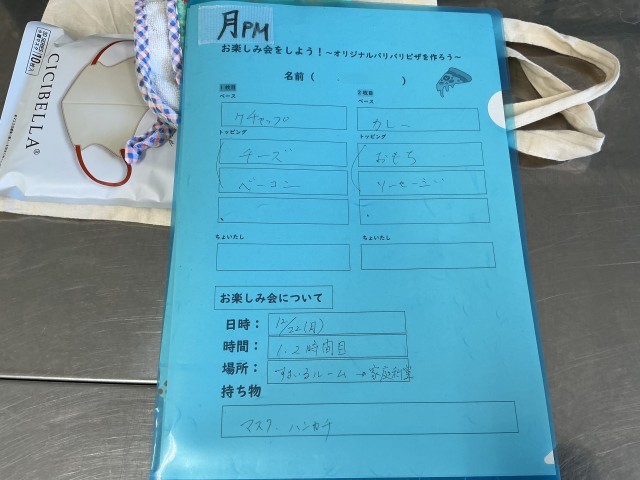 月PM
お楽しみ会をしよう！～オリジナルパリパリピザを作ろう～
名前（　　　　　　）
1枚目　2枚目
ベース　ベース
ケチャップ　カレー
トッピング　トッピング
チーズ　おもち
ベーコン　ソーセージ
ちょいたし　ちょいたし
お楽しみ会について
日時： 12/22(月)
時間： 1.2時間目
場所： すまいるルーム→家庭科室
持ち物
マスク、ハンカチ
CICIBELLA®